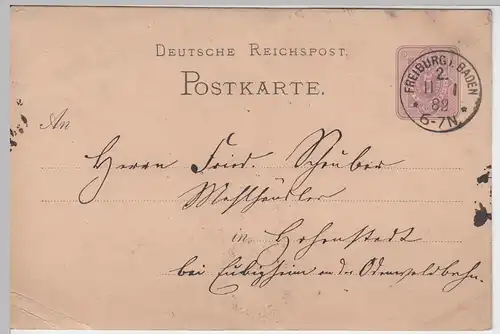 DEUTSCHE REICHSPOST.
POSTKARTE.
FREIBURG I. BADEN
2.
11 1
82
6-7N.
An
Herrn Fried. Schuber
Mehlhändler
in Hohenstadt
bei Eubigheim an der Odenwaldbahn.